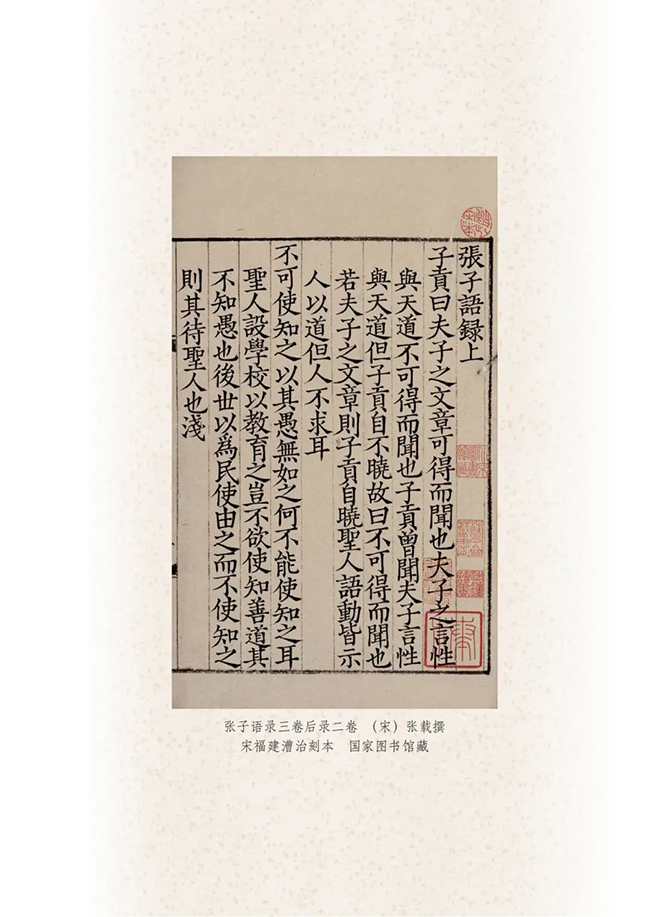 張子語録上
子貢曰夫子之文章可得而聞也夫子之言性
與天道不可得而聞也子貢曾聞夫子言性
與天道但子貢自不曉故曰不可得而聞也
若夫子之文章則子貢自曉聖人語動皆示
人以道但人不求耳
不可使知之以其愚無如之何不能使知之耳
聖人設學校以教育之豈不欲使知善道其
不知愚也後世以為民使由之而不使知之
則其待聖人也淺
张子语录三卷后录二卷 （宋）张载撰
宋福建漕治刻本 国家图书馆藏